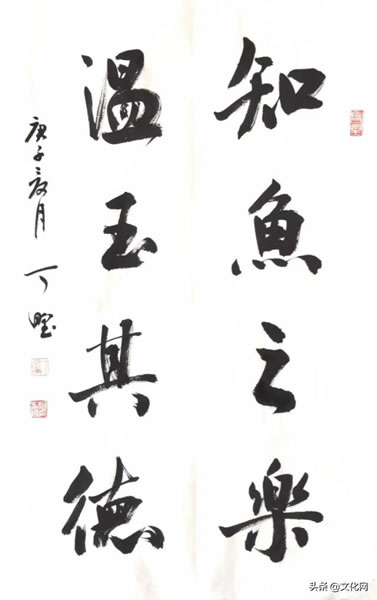 知魚之樂
温玉其德
庚子夏月
头条@文化网